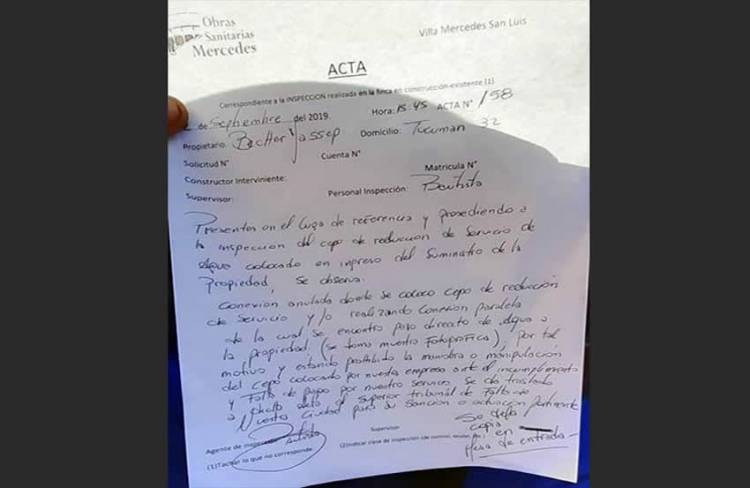 Obras
Sanitarias
Mercedes
Villa Mercedes San Luis
ACTA
Correspondiente a la INSPECCION realizada en la finca en construcción existente (1)
2 de Septiembre del 2019. Hora: 15:45 ACTA N° 158
Propietario: Domicilio: Tucuman 32
Solicitud N° Cuenta N° Matricula N°
Constructor Interviniente:
Supervisor: Personal Inspección: Bautista
Presentes en el lugar de referencia y procediendo a
la inspección del cepo de reducción de Servicio de
Agua colocado en ingreso del Suministro de la
Propiedad, se observa:
Conexión anulada donde se coloco Cepo de reducción
de Servicio y/o realizando Conexión paralela
de la cual se encontro paso directo de Agua a
la propiedad, (se tomo muestra Fotografica), por tal
motivo y estando prohibido la maniobra o manipulación
del Cepo colocado por nuestra empresa ante el incumplimiento
y Falta de pago por nuestro servicio. Se da traslado
a dicha acta al Superior tribunal de Faltas de
Nuestra Ciudad para su Sanción o actuación pertinente
Se deja
copia
en
Mesa de entrada
Agente de inspección Supervisor
(1)Tachar lo que no corresponde (2)Indicar clase de inspección